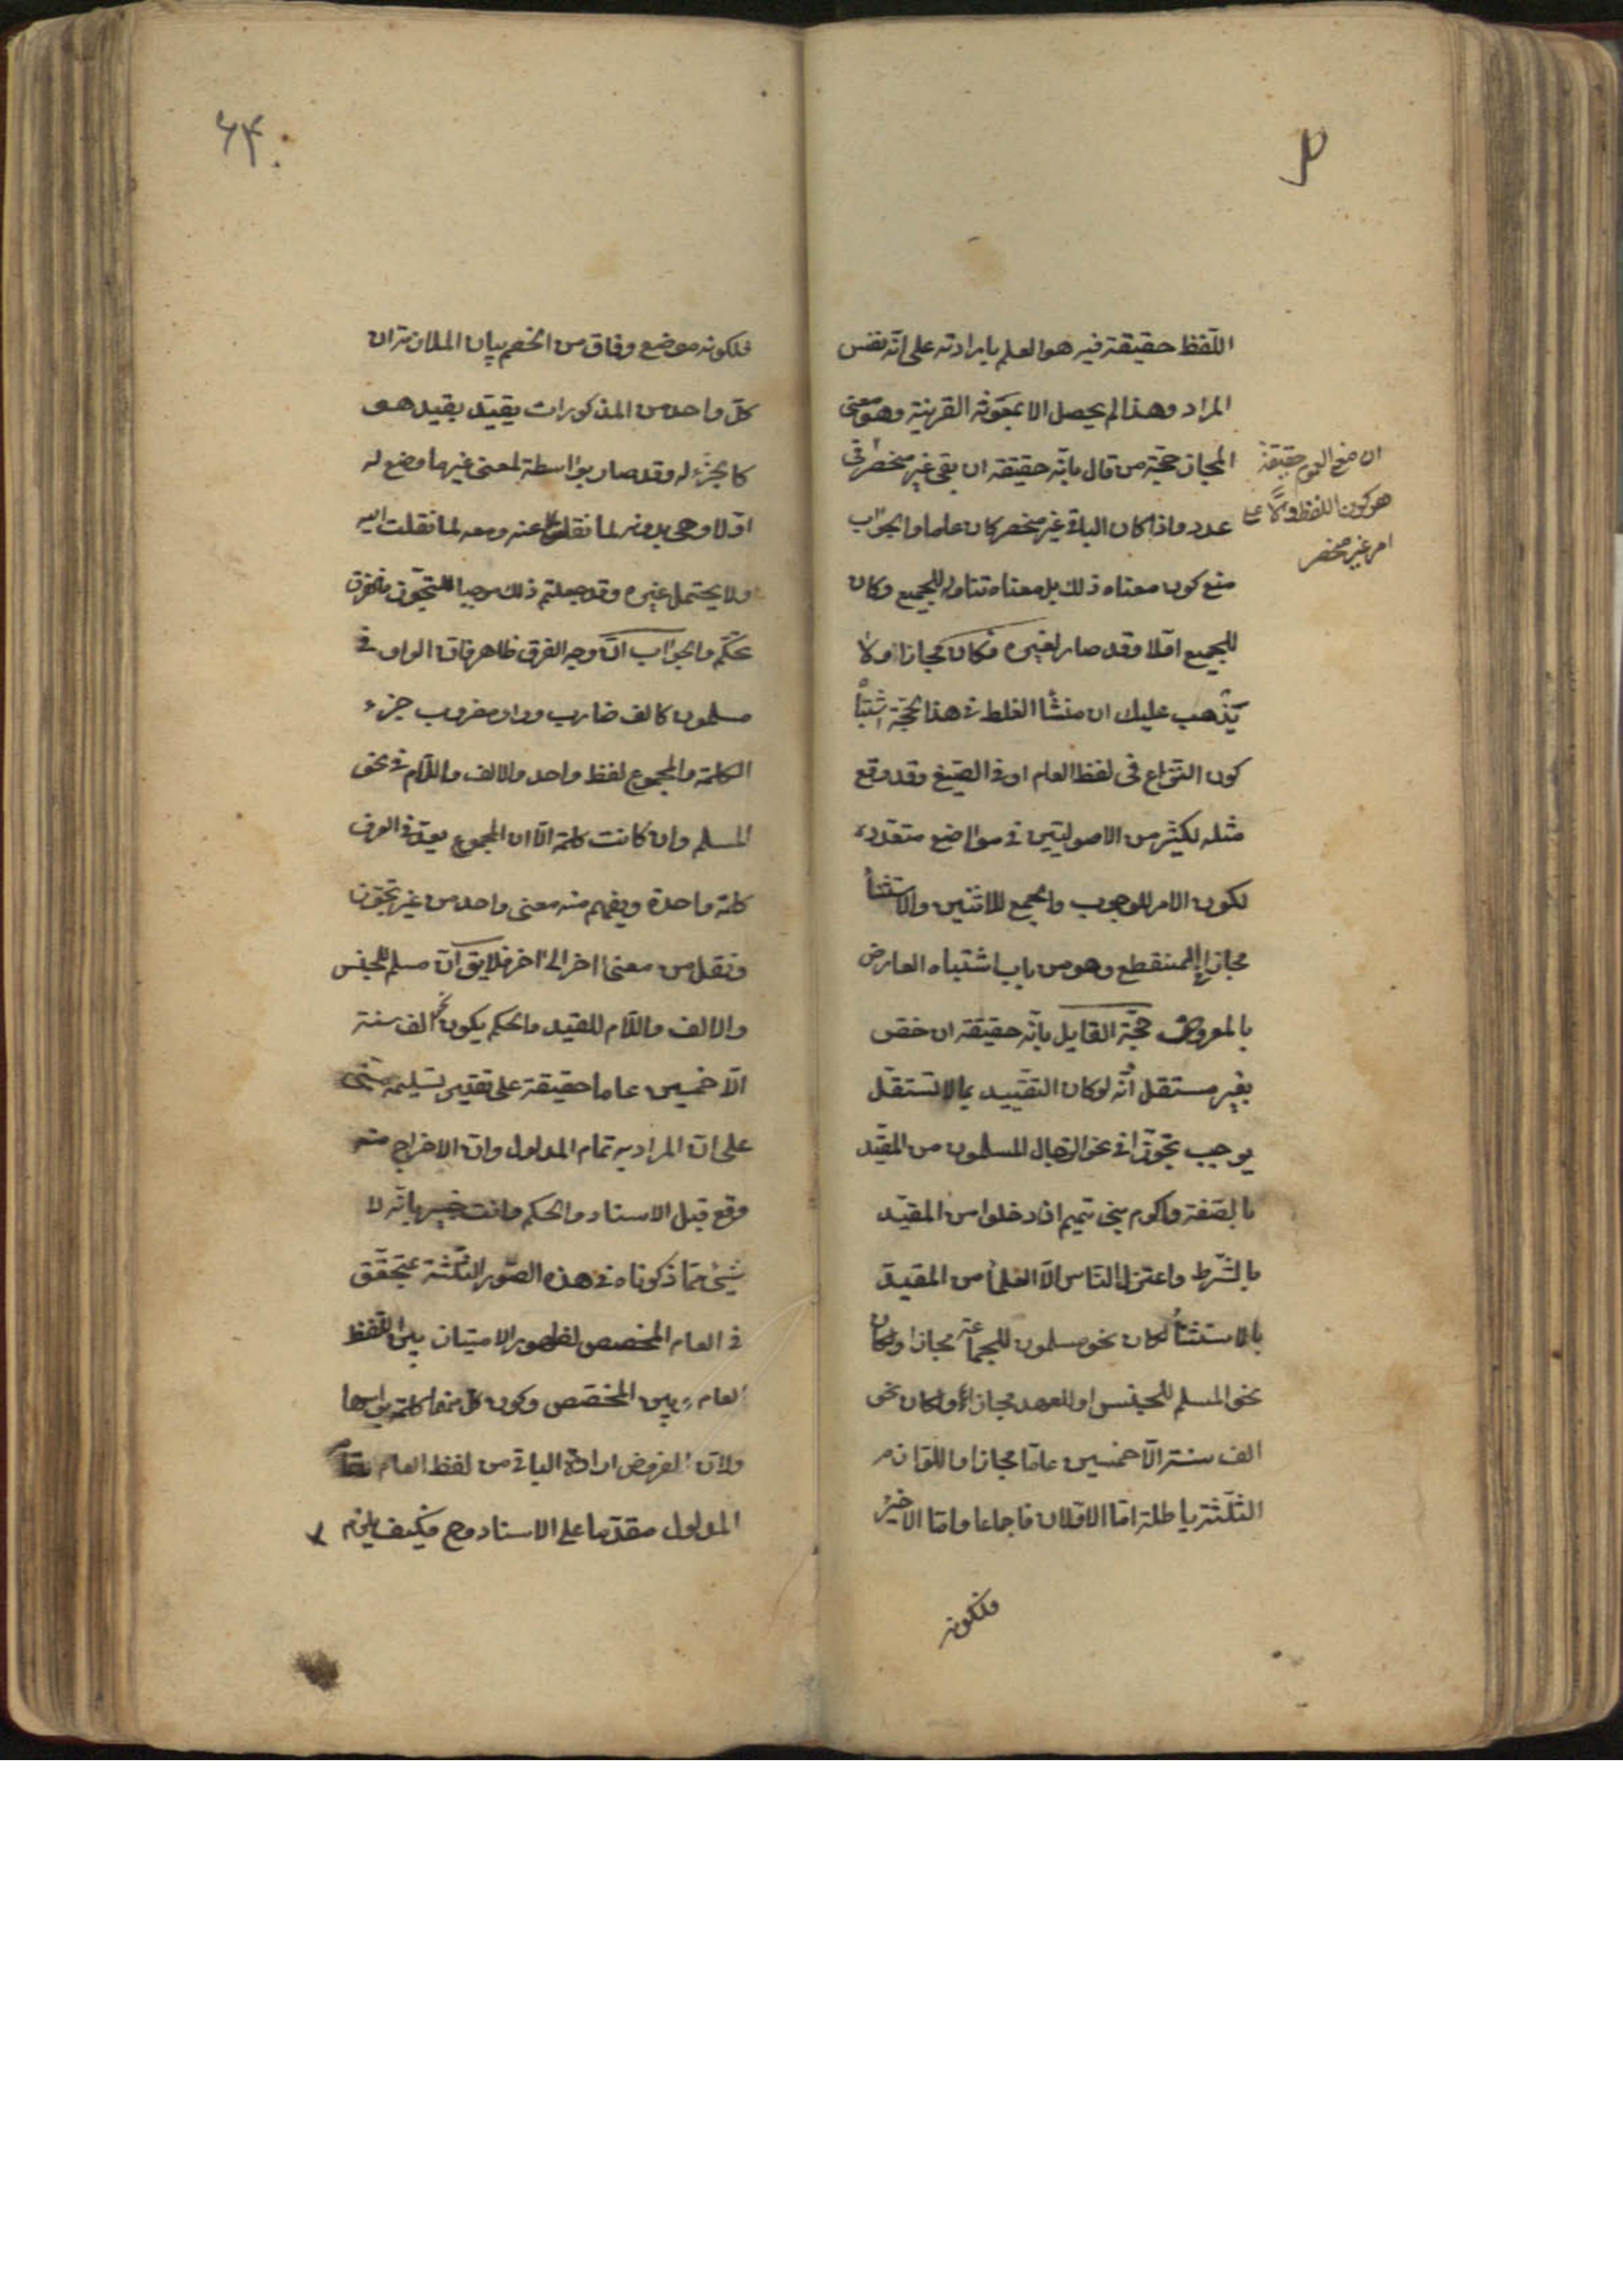 اللفظ حقيقة فيه هو العلم بارادته على انه نفس
المراد وهذا لم يحصل الا بمعونة القرينة وهو معنى
المجاز حجة من قال بانه حقيقة ان بقى غير منحصر
ان معنى العموم حقيقة
هو كون اللفظ دالا على
امر غير منحصر
عدد واذا كان الباقى غير منحصر كان عاما والجواب
منع كون معناه ذلك بل معناه تناوله للجميع وكان
للجميع اولا وقد صار لغيره فكان مجازا ولا
يذهب عليك ان منشأ الغلط فى هذا الحجة اشتباه
كون النزاع فى لفظ العام او فى الصيغ وقد وقع
مثله لكثير من الاصوليين فى مواضع متعدده
لكون الامر للوجوب والجمع للاثنين والاستثنأ
مجازا فى المنقطع وهو من باب اشتباه العارض
بالمعروض حجة القايل بانه حقيقة ان خص
بغير مستقل انه لو كان التقييد بما لا تستقل
يوجب تجوزا فى نحو الرجال المسلمون من المقيد
بالصفة واكرم بنى تميم ان دخلوا من المقيد
بالشرط واعتزل الناس الا العلمأ من المقيد
بالاستثنأ لكان نحو مسلمون للجماعة مجازا ولكان
نحو المسلم للجنس او للعهد مجازا ولكان نحو
الف سنة الا خمسين عاما مجازا واللوازم
الثلثة باطلة اما الاولان فاجماعا واما الاخير
فلكونه
۶۴
فلكونه موضع وفاق من الخصم بيان الملازمة ان
كل واحد من المذكورات يقيد بقيد هو
كالجزء له وقد صار بواسطة لمعنى غير ما وضع له
اولا وهى بدونه لما نقلت عنه ومعه لما نقلت اليه
ولا يحتمل غيره وقد جعلتم ذلك موجبا للتجوز فالفرق
تحكم والجواب ان وجه الفرق ظاهر فان الواو فى
مسلمون كالف ضارب وواو مضروب جزء
الكلمة والمجموع لفظ واحد والالف واللام فى نحو
المسلم وان كانت كلمة الا ان المجموع يعد فى العرف
كلمة واحدة ويفهم منه معنى واحد من غير تجوز
ونقل من معنى اخر الى اخر فلا يق ان مسلم للجنس
والالف واللام للقيد والحكم يكون نحو الف سنة
الا خمسين عاما حقيقة على تقدير تسليمه مبنى
على ان المراد به تمام المدلول وان الاخراج منه
وقع قبل الاسناد والحكم وانت خبير بانه لا
شىء مما ذكرناه فى هذه الصور الثلثة بمتحقق
فى العام المخصص لظهور الامتياز بين اللفظ
العام وبين المخصص وكون كل منهما كلمة براسها
ولان المفروض ارادة الباقى من لفظ العام
المدلول مقدما على الاسناد وح فكيف يلزم